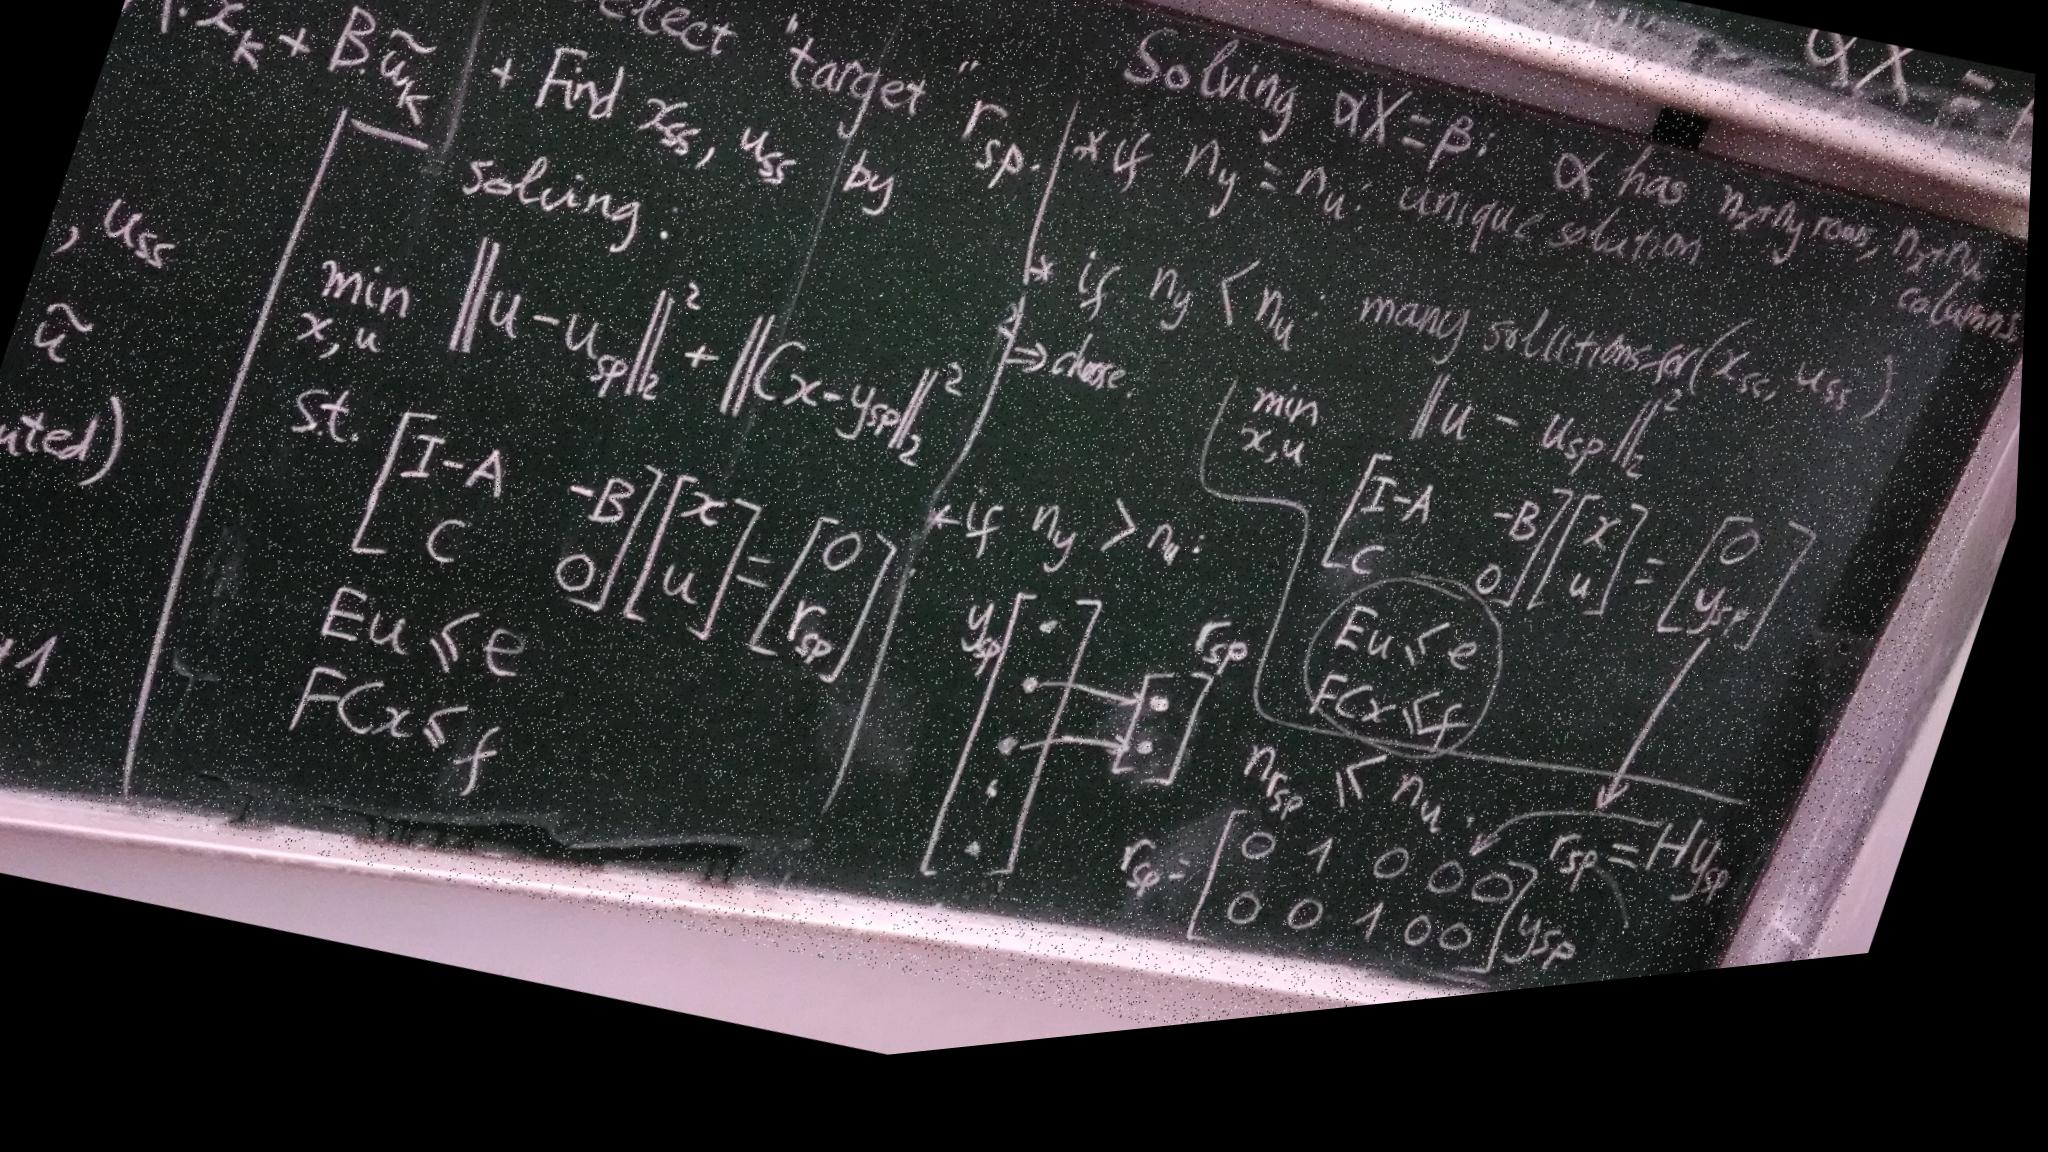 x_k + B ũ_k
, u_ss
ũ
"target" r_sp.
+ Find x_ss, u_ss by
solving :
min ‖u - u_sp‖₂² + ‖Cx - y_sp‖₂²
x, u
st. [I-A -B] [x] = [0]
[C 0] [u] [r_sp]
Eu ≤ e
FCx ≤ f
αX =
Solving αX = β: α has n_x+n_y rows, n_x+n_u
columns
* if n_y = n_u : unique solution
* if n_y < n_u : many solutions for (x_ss, u_ss)
⇒ choose
min ‖u - u_sp‖₂²
x,u
[I-A -B] [x] = [0]
[C 0] [u] [y_sp]
Eu ≤ e
FCx ≤ f
* if n_y > n_u :
y_sp
r_sp
n_rsp ≤ n_u .
r_sp = H y_sp
r_sp = [0 1 0 0 0]
[0 0 1 0 0] y_sp